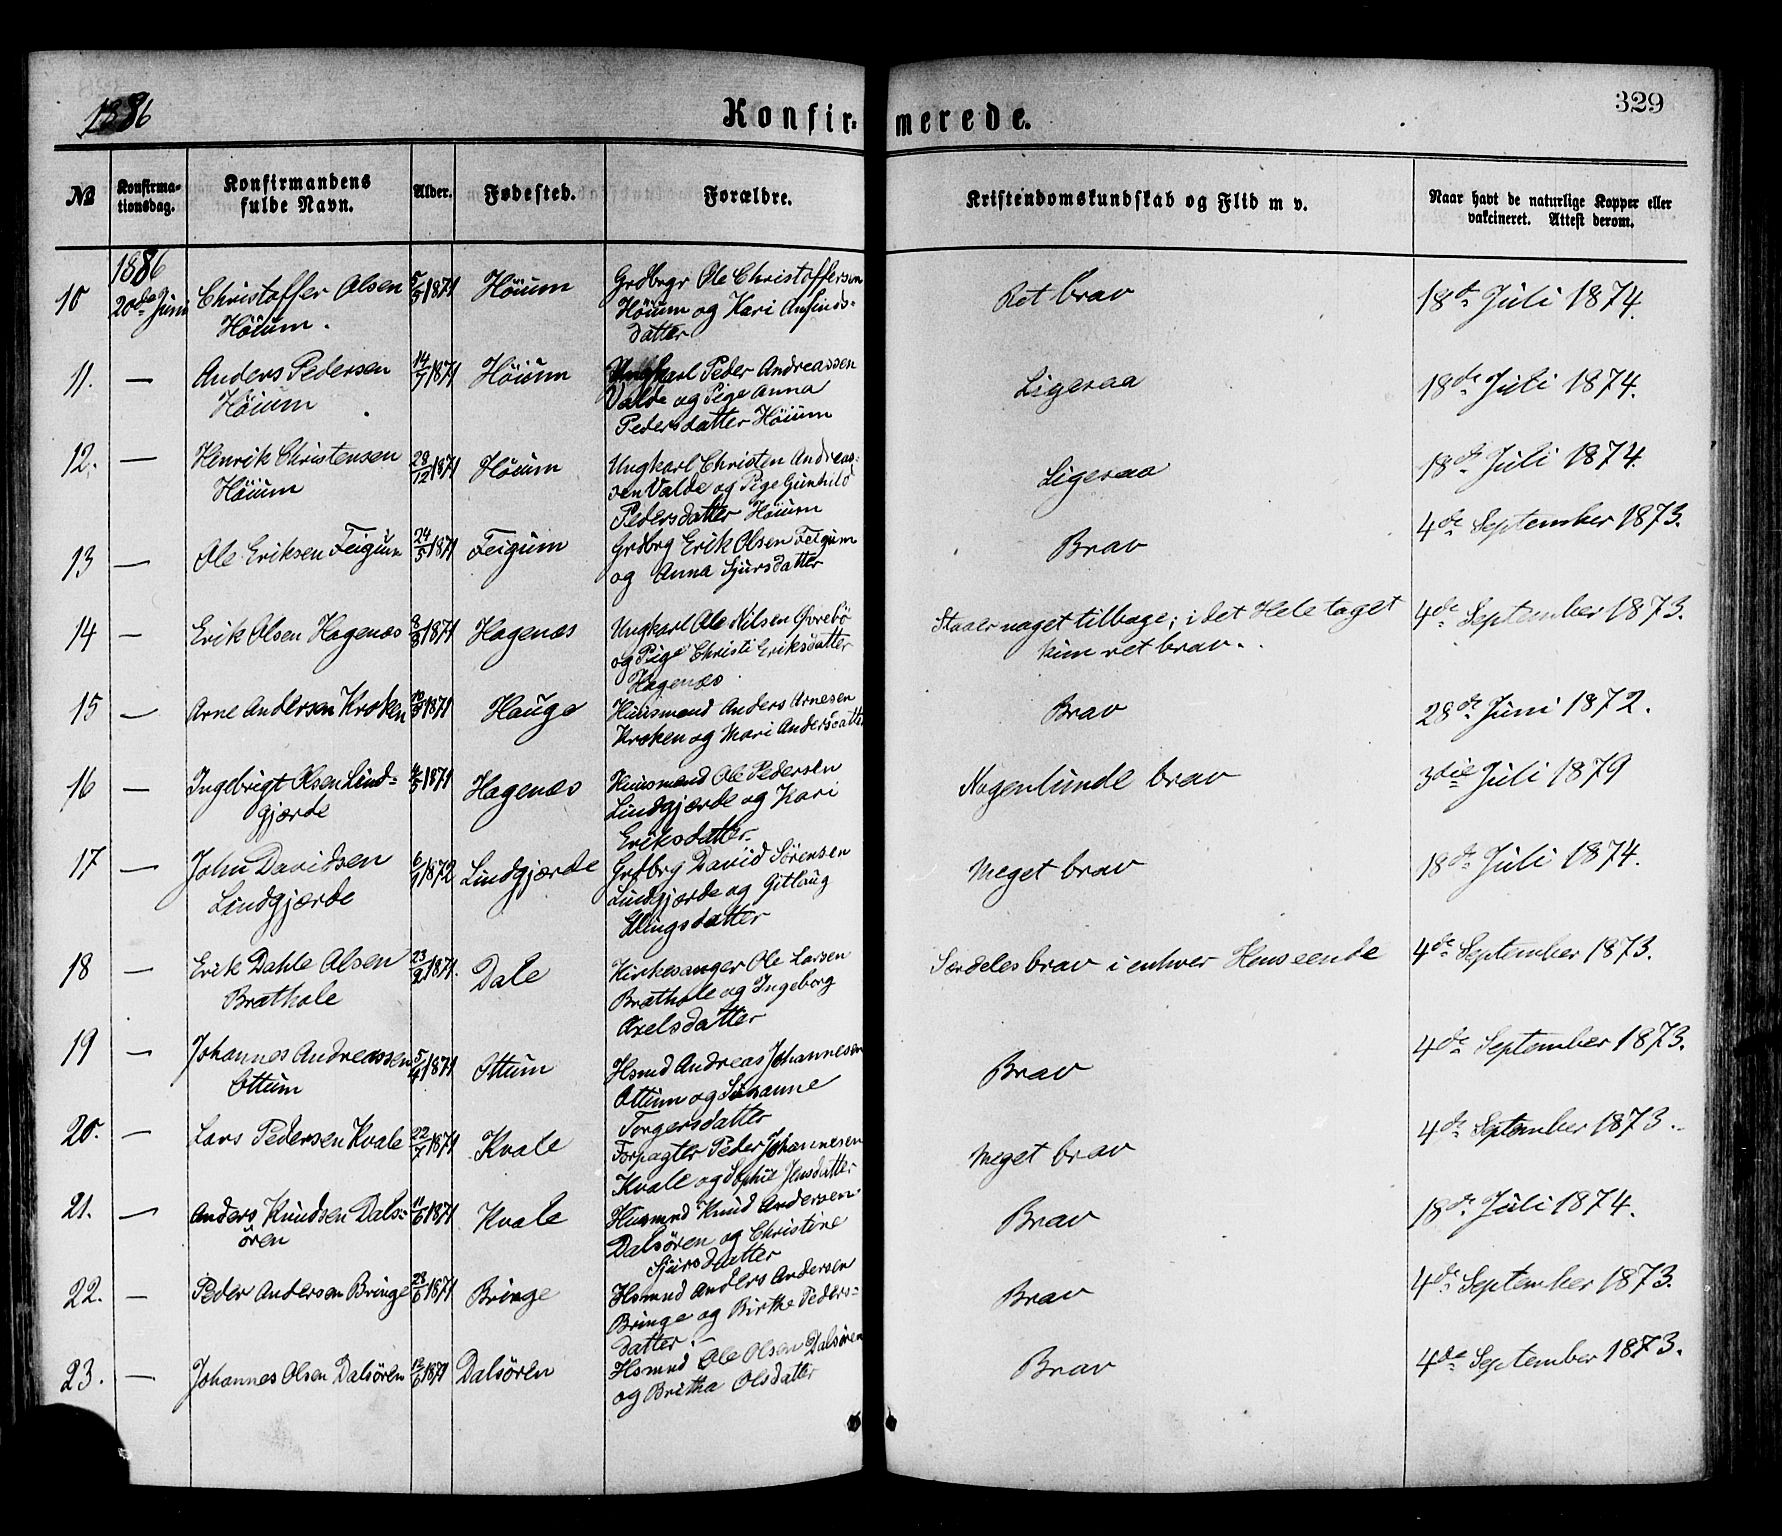 1886
Konfirmerede.
329
No
Konfirmationsdag.
Konfirmandens fulde Navn.
Alder.
Fødested.
Forældre.
Kristendomskundskab og Flid m v.
Naar havt de naturlige Kopper eller vakcineret. Attest derom.
1886
10 20de Juni Christoffer Olsen 5/5 1871 Höium Grdbrgr Ole Christoffersen Ret brav 18de Juli 1874.
Höium. Höium og Kari Anfinds-
datter
11. — Anders Pedersen 14/7 1871 Höium Ungkarl Peder Andreassen Ligesaa 18de Juli 1874.
Höium Valde og Pige Anna
Pedersdatter Höium
12. — Henrik Christensen 28/12 1871 Höium Ungkarl Christen Andreas- Ligesaa 18de Juli 1874.
Höium sen Valde og Pige Gunhild
Pedersdatter Höium
13 — Ole Eriksen Feigum 24/5 1871 Feigum Grdbrg Erik Olsen Feigum Brav 4de September 1873.
og Anna Sjursdatter
14 — Erik Olsen Hagenæs 1871 Hagenæs Ungkarl Ole Nilsen Øvrebö Staaer noget tilbage; i det Hele taget 4de September 1873.
og Pige Christi Eriksdatter kun ret brav.
Hagenæs
15 — Arne Andersen Kroken 1871 Hauge Huusmand Anders Arnesen Brav 28de Juni 1872.
Kroken og Mari Andersdatter
16 — Ingebrigt Olsen Lind- 1871 Hagenæs Huusmand Ole Pedersen Nogenlunde brav 3die Juli 1879
gjærde Lindgjærde og Kari
Eriksdatter.
17 — John Davidsen 6/1 1872 Lindgjærde Grdbrg David Sörensen Meget brav 18de Juli 1874.
Lindgjærde Lindgjærde og Gitlaug
Ellingsdatter
18 — Erik Dahle Olsen 23/2 1871. Dale Kirkesanger Ole Larsen Særdeles brav i enhver Henseende 4de September 1873.
Bræthole Bræthole og Ingeborg
Axelsdatter
19 — Johannes Andreassen 5/4 1871 Ottum Hsmd Andreas Johannesen Brav 4de September 1873.
Ottum Ottum og Susanne
Torgersdatter
20. — Lars Pedersen Kvale 22/7 1871 Kvale Forpagter Peder Johannesen Meget brav 4de September 1873.
Kvale og Sophie Jensdatter
21. — Anders Knudsen Dals- 11/6 1871 Kvale Husmnd Knud Andersen Brav 18de Juli 1874.
ören Dalsören og Christine
Sjursdatter
22. — Peder Andersen Bringe 23/6 1871 Bringe Hsmnd Anders Andersen Brav 4de September 1873.
Bringe og Birthe Peders-
datter.
23. — Johannes Olsen Dalsören 12/6 1871 Dalsören Hsmnd Ole Olsen Dalsören Brav 4de September 1873.
og Britha Olsdatter